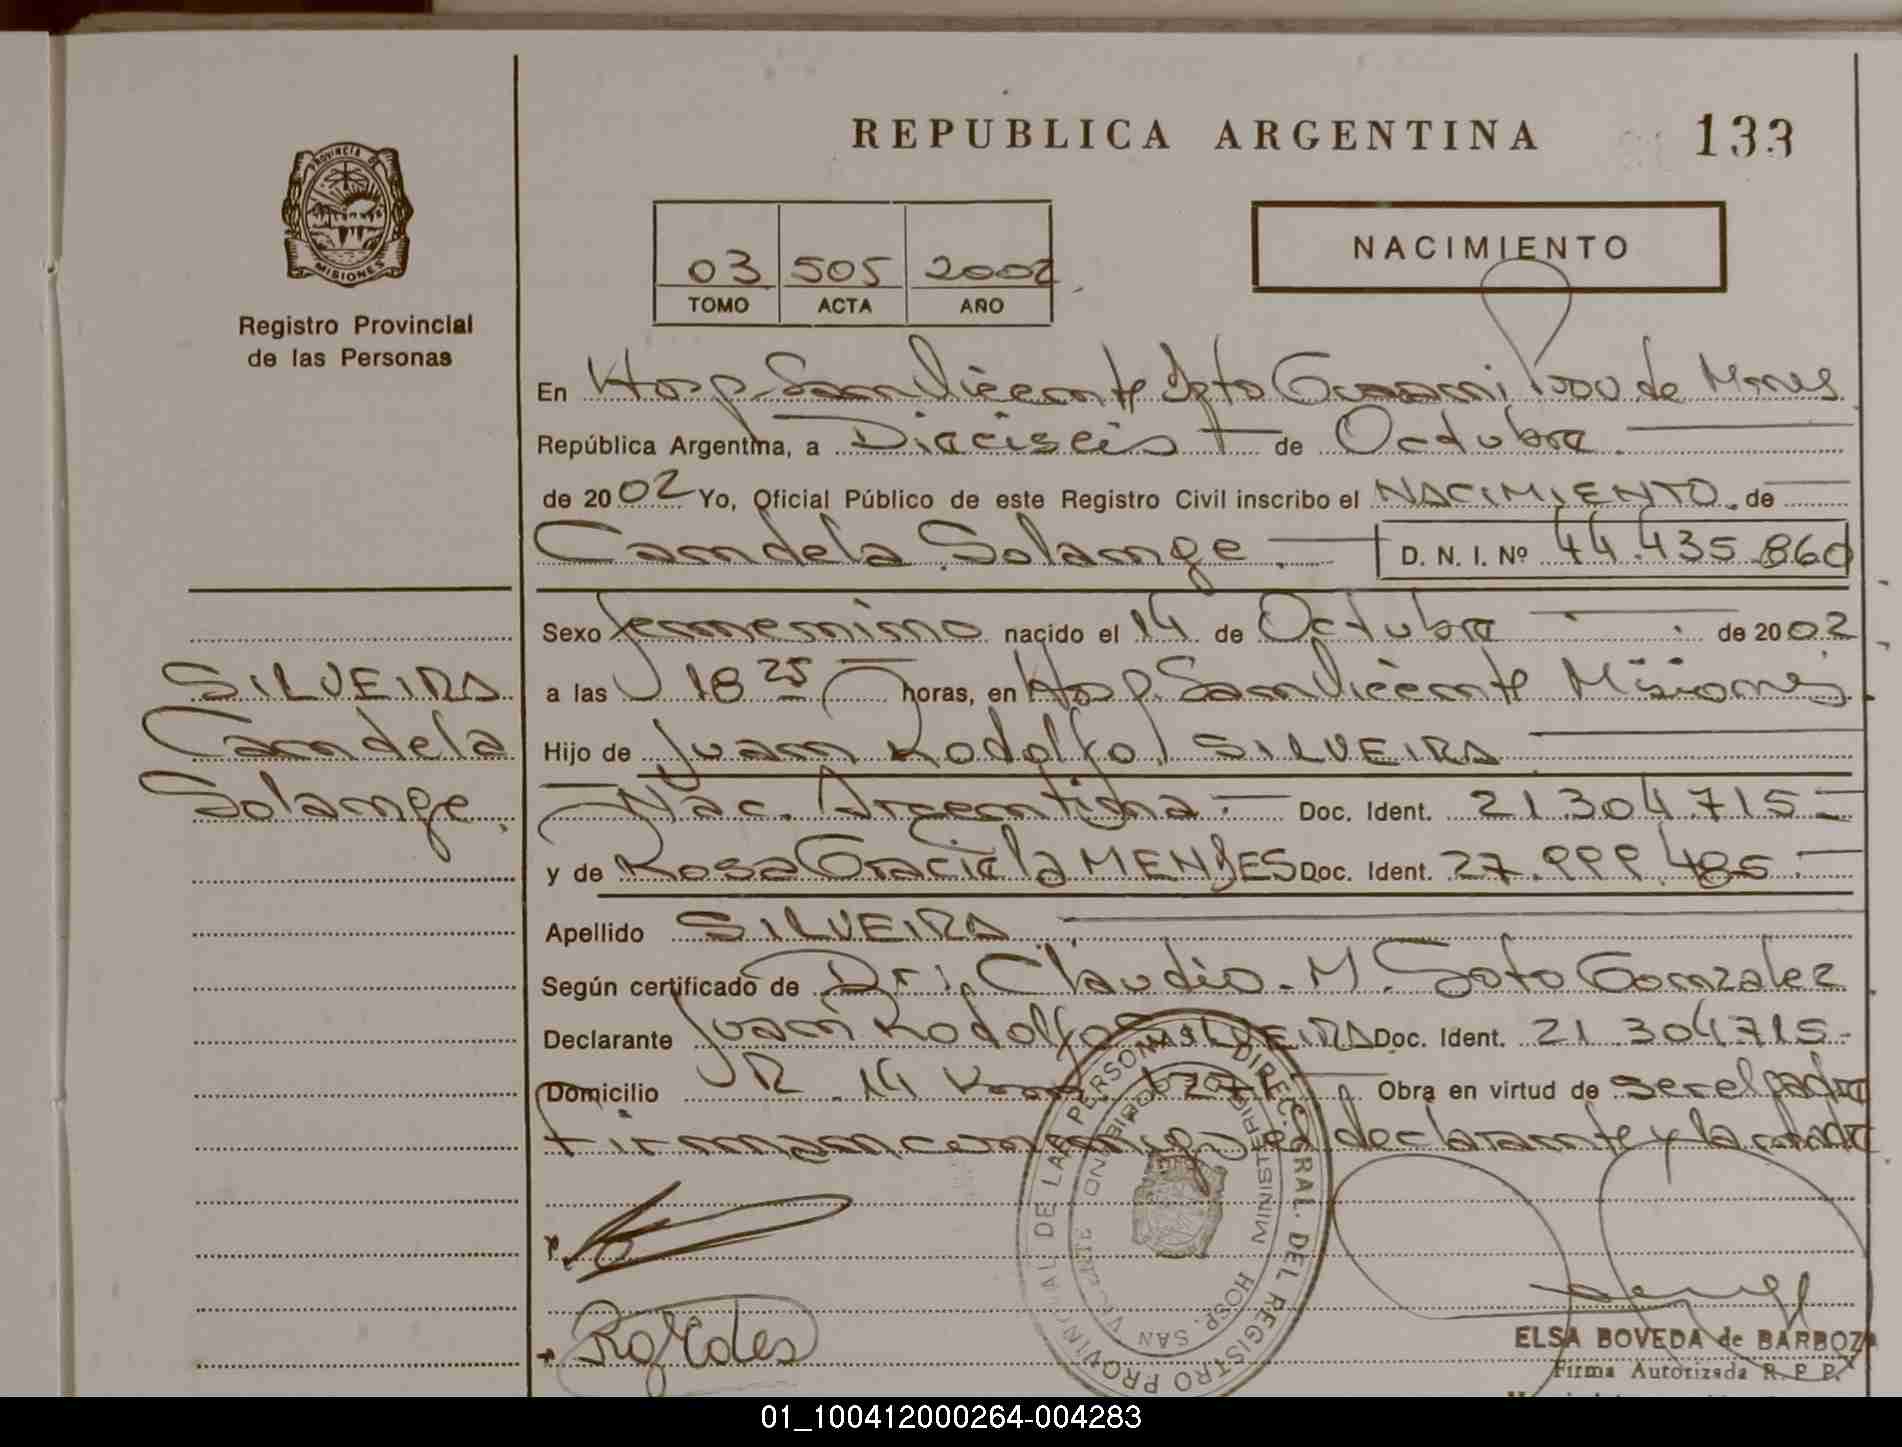 REPUBLICA ARGENTINA 133
PROVINCIA DE
MISIONES
Registro Provincial
de las Personas
03 505 2002
TOMO ACTA AÑO
NACIMIENTO
En Hosp. San Vicente Dpto Guarani Prov de Mnes
República Argentina, a Dieciseis de Octubre
de 2002 Yo, Oficial Público de este Registro Civil inscribo el NACIMIENTO de
Candela Solange. D. N. I. Nº 44.435.860
Sexo femenino nacido el 14 de Octubre de 2002
SILVEIRA
a las 18 25 horas, en Hosp. San Vicente Misiones
Candela
Hijo de Juan Rodolfo SILVEIRA
Solange.
Nac. Argentina. Doc. Ident. 21.304.715
y de Rosa Graciela MENDES Doc. Ident. 27.999.485
Apellido SILVEIRA
Según certificado de Dr. Claudio M. Soto Gonzalez
Declarante Juan Rodolfo SILVEIRA Doc. Ident. 21.304.715
Domicilio R. 14 Km 1271 Obra en virtud de ser el padre
Firman conmigo el declarante y la madre
DIREC. GRAL. DEL REGISTRO PROVINCIAL DE LAS PERSONAS
HOSP. SAN VICENTE
ELSA BOVEDA de BARBOZA
Firma Autorizada R. P. P.
01_100412000264-004283